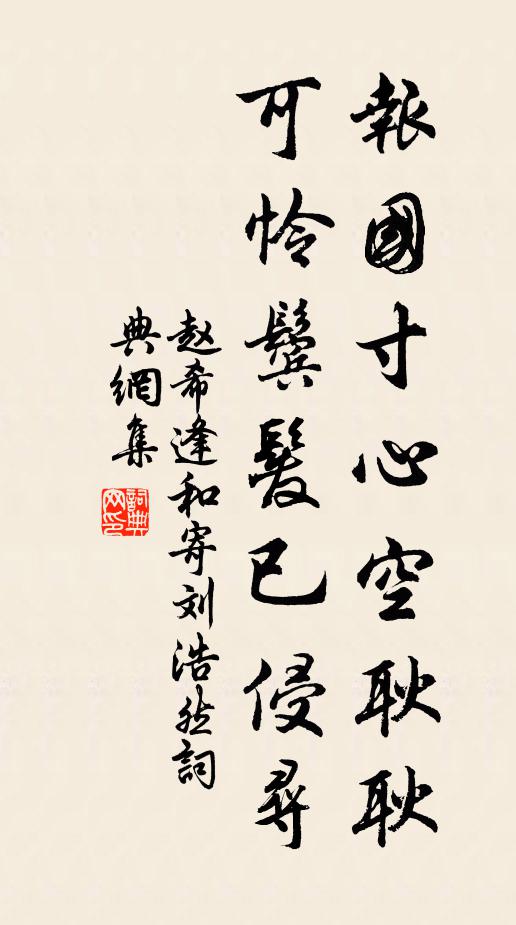 報國寸心空耿耿
可怜鬓髮已侵尋
赵希逢和寄刘浩然詞
典網集
詞典
网印